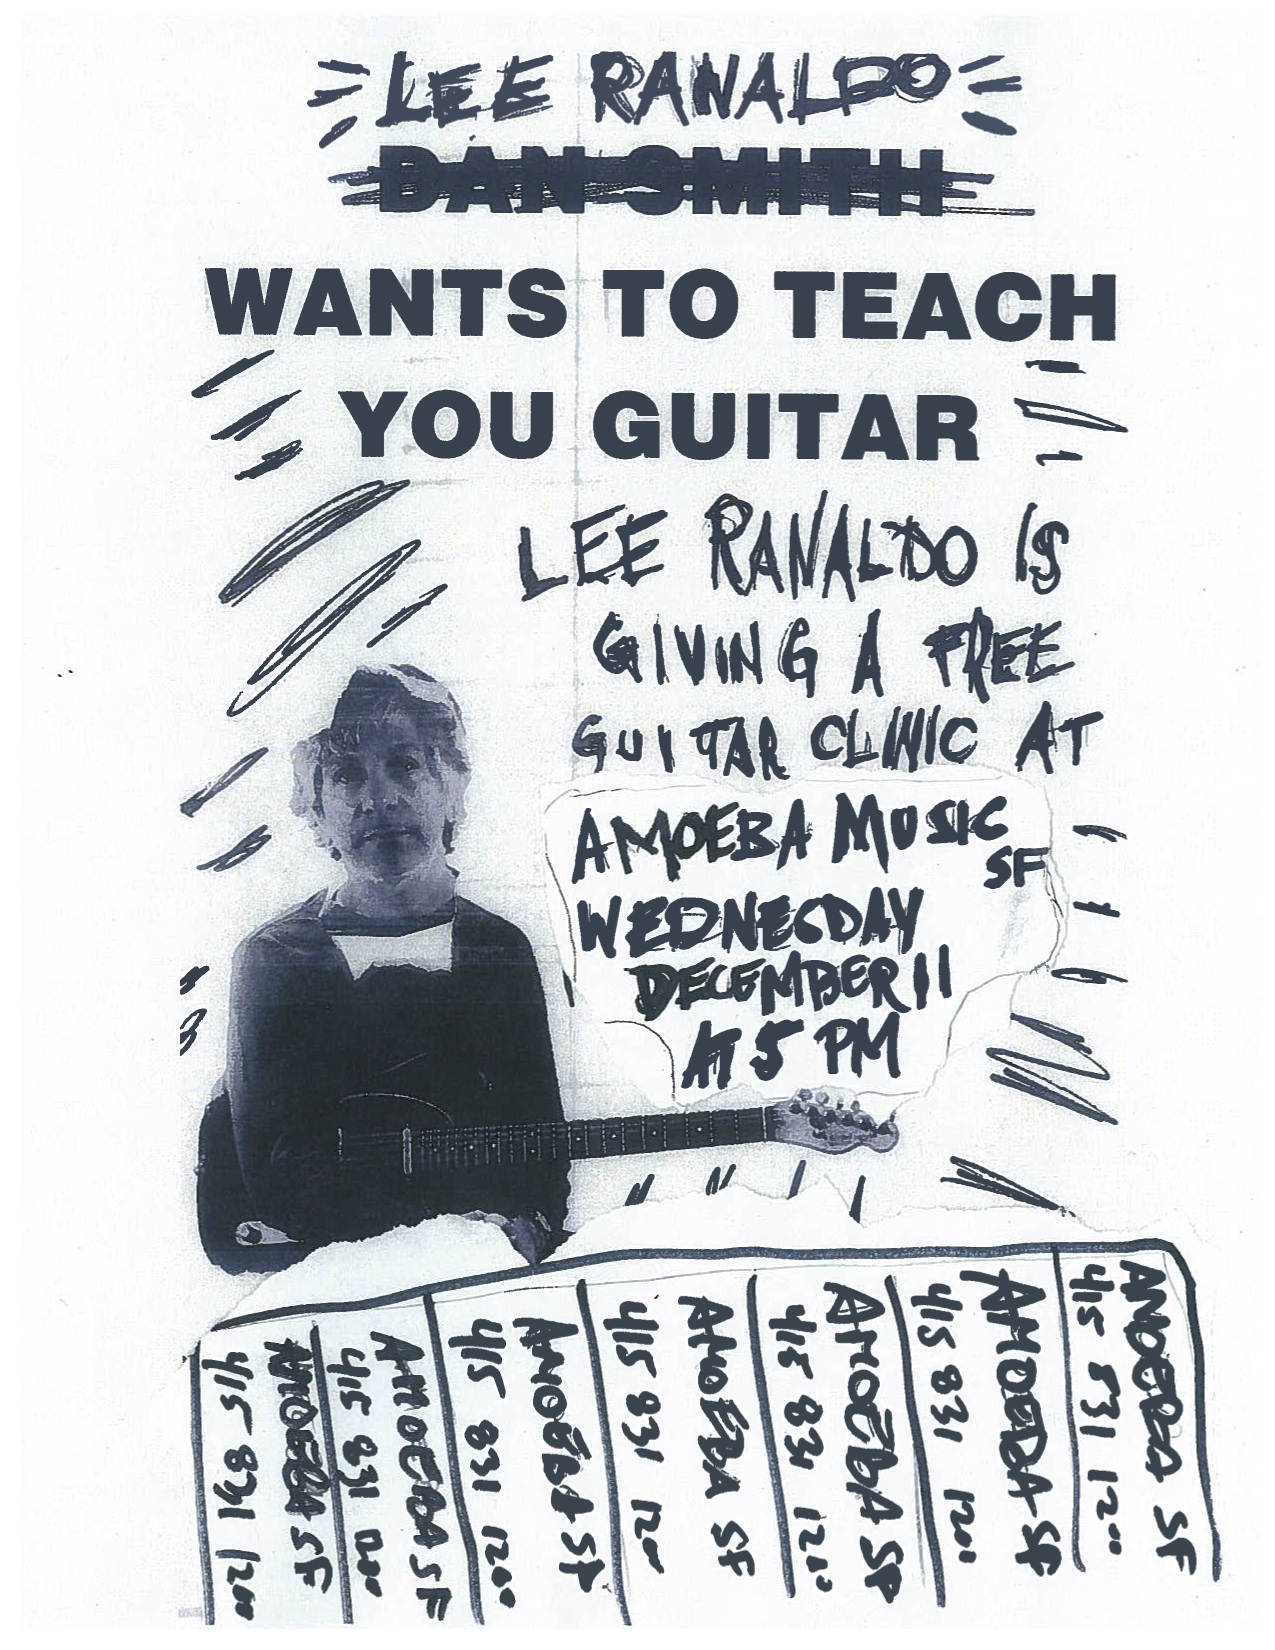 LEE RANALDO
DAN SMITH
WANTS TO TEACH
YOU GUITAR
LEE RANALDO IS
GIVING A FREE
GUITAR CLINIC AT
AMOEBA MUSIC
SF
WEDNESDAY
DECEMBER 11
AT 5 PM
AMOEBA SF
415 831 1200
AMOEBA SF
415 831 1200
AMOEBA SF
415 831 1200
AMOEBA SF
415 831 1200
AMOEBA SF
415 831 1200
AMOEBA SF
415 831 1200
AMOEBA SF
415-831 1200